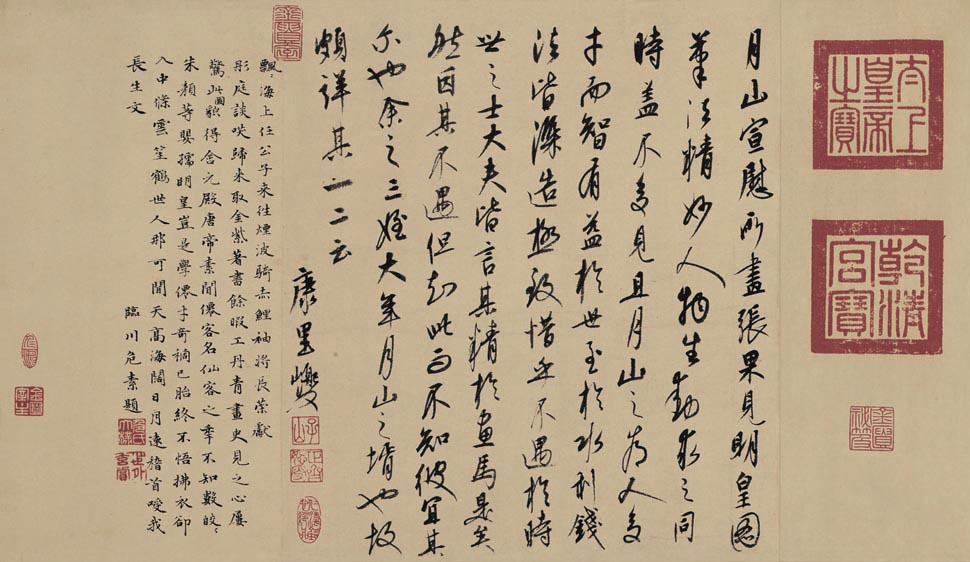 太上皇帝之寶
乾清宮寶
月山宣慰所畫張果見明皇圖
筆法精妙人物生動求之同
時蓋不多見且月山之為人多
才而智有益於世至於水利錢
法皆深造極致惜乎不遇於時
世之士大夫皆言其精於畫馬是矣
然因其不遇但知此而不知彼宜其
尒也余之三姪大年月山之壻也故
頗詳其一二云
康里巎
子山
飄飄海上任公子來往煙波騎赤鯉袖將長策獻
彤庭談咲歸來取金紫著書餘暇工丹青畫史見之心屢
驚此圖貌得含元殿唐帝素聞僊客名仙客之年不知數皎皎
朱顏等嬰孺明皇豈是學僊才奇禍已胎終不悟拂衣卻
入中條雲笙鶴世人那可聞天高海闊日月遠稽首我
長生文
臨川危素題